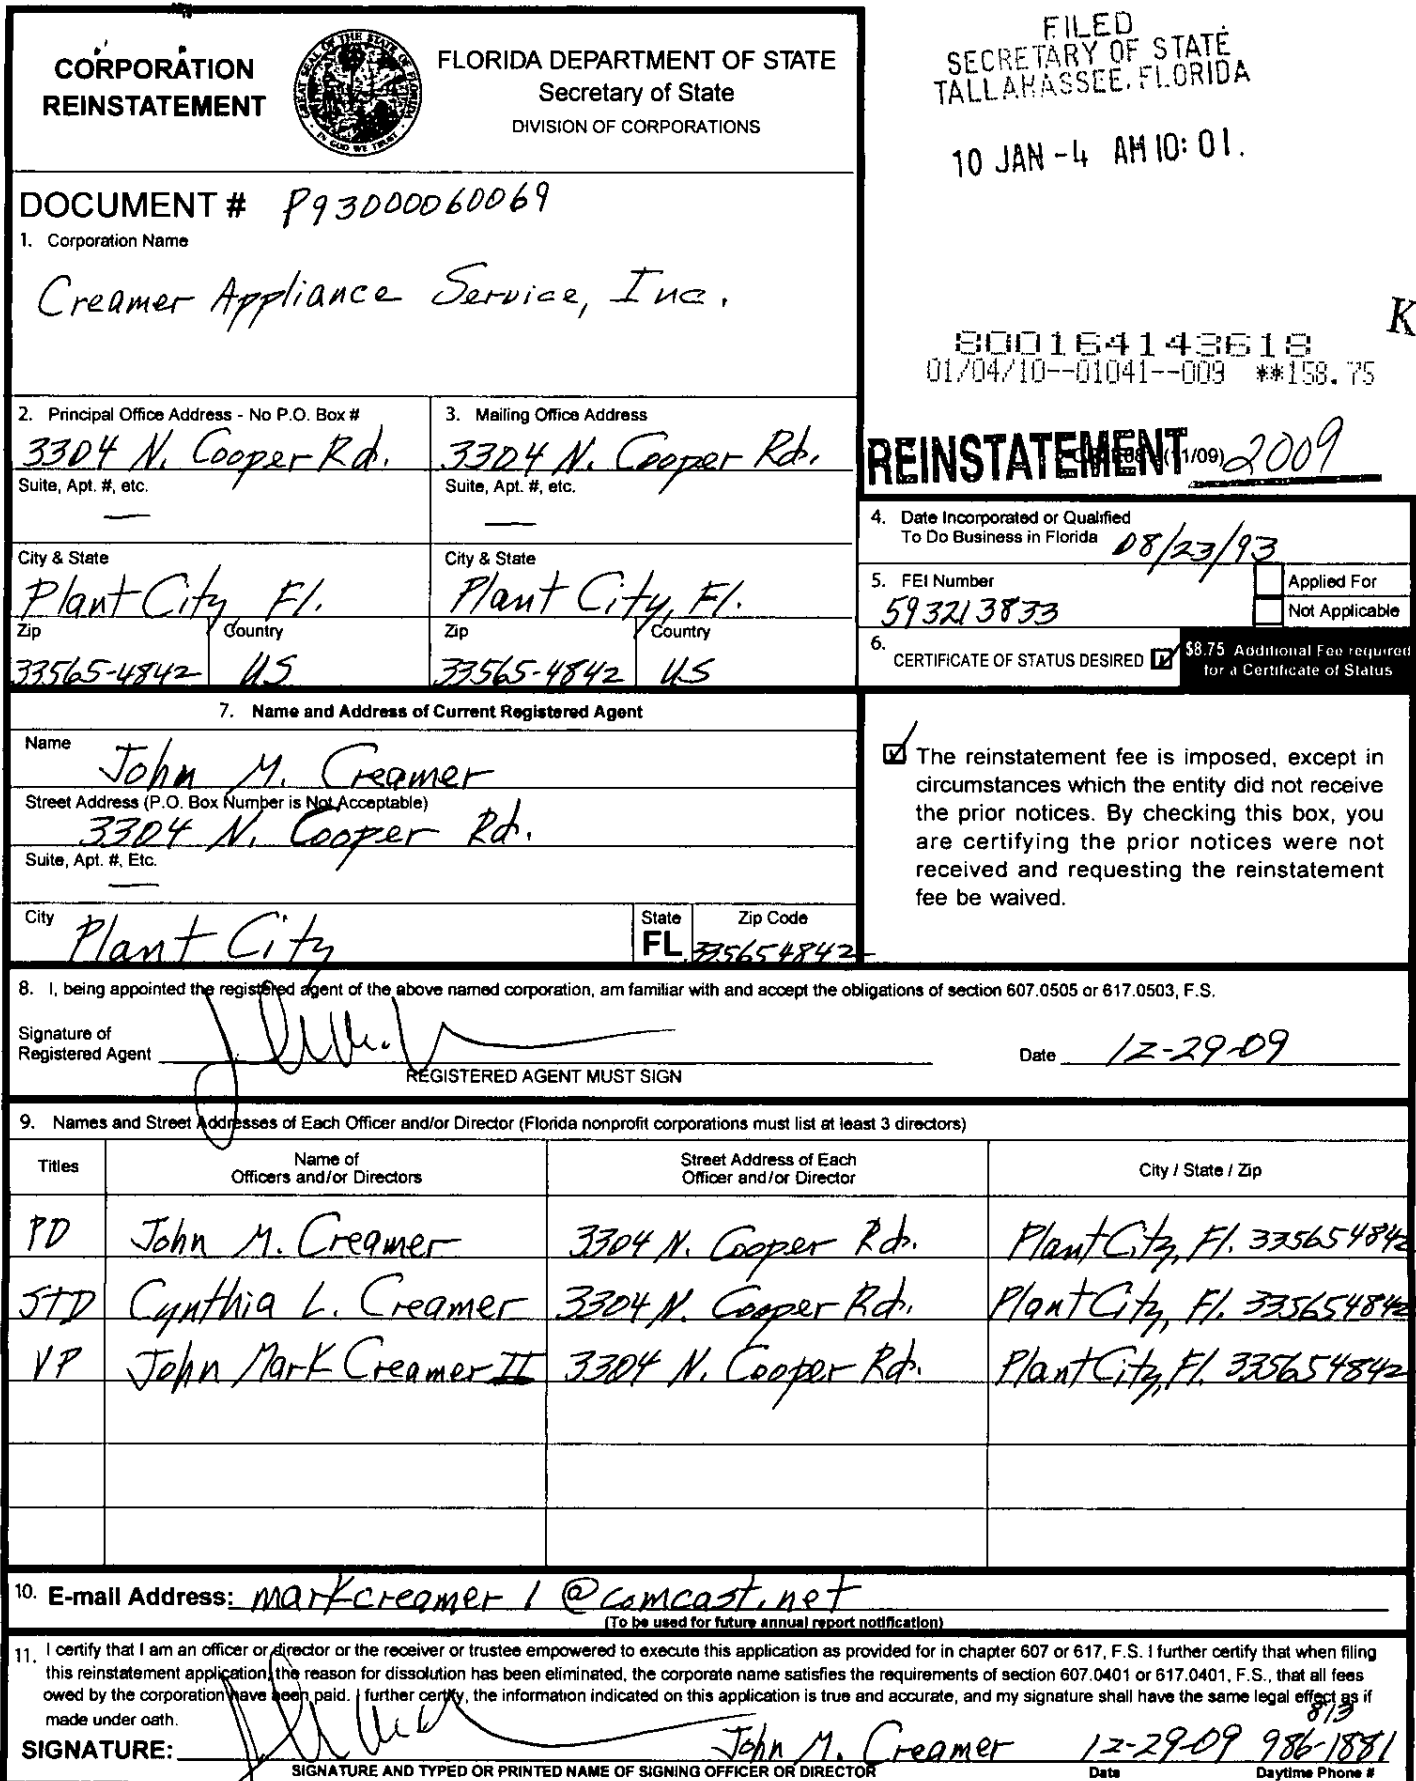 CORPORATION
REINSTATEMENT
FLORIDA DEPARTMENT OF STATE
Secretary of State
DIVISION OF CORPORATIONS
FILED
SECRETARY OF STATE
TALLAHASSEE, FLORIDA
10 JAN -4 AM 10: 01.
DOCUMENT # P93000060069
1. Corporation Name
Creamer Appliance Service, Inc.
K
800164143618
01/04/10--01041--009 **158.75
2. Principal Office Address - No P.O. Box #
3304 N. Cooper Rd.
Suite, Apt. #, etc.
—
City & State
Plant City Fl.
Zip Country
33565-4842 US
3. Mailing Office Address
3304 N. Cooper Rd.
Suite, Apt. #, etc.
—
City & State
Plant City, Fl.
Zip Country
33565-4842 US
REINSTATEMENT (11/09) 2009
4. Date Incorporated or Qualified
To Do Business in Florida 08/23/93
5. FEI Number
593213833
Applied For
Not Applicable
6. CERTIFICATE OF STATUS DESIRED
$8.75 Additional Fee required
for a Certificate of Status
7. Name and Address of Current Registered Agent
Name
John M. Creamer
Street Address (P.O. Box Number is Not Acceptable)
3304 N. Cooper Rd.
Suite, Apt. #, Etc.
—
City Plant City
State FL
Zip Code 335654842
The reinstatement fee is imposed, except in
circumstances which the entity did not receive
the prior notices. By checking this box, you
are certifying the prior notices were not
received and requesting the reinstatement
fee be waived.
8. I, being appointed the registered agent of the above named corporation, am familiar with and accept the obligations of section 607.0505 or 617.0503, F.S.
Signature of
Registered Agent
REGISTERED AGENT MUST SIGN
Date 12-29-09
9. Names and Street Addresses of Each Officer and/or Director (Florida nonprofit corporations must list at least 3 directors)
Titles
Name of
Officers and/or Directors
Street Address of Each
Officer and/or Director
City / State / Zip
PD John M. Creamer 3304 N. Cooper Rd. Plant City, Fl. 335654842
STD Cynthia L. Creamer 3304 N. Cooper Rd. Plant City, Fl. 335654842
VP John Mark Creamer II 3304 N. Cooper Rd. Plant City, Fl. 335654842
10. E-mail Address: markcreamer1@comcast.net
(To be used for future annual report notification)
11. I certify that I am an officer or director or the receiver or trustee empowered to execute this application as provided for in chapter 607 or 617, F.S. I further certify that when filing
this reinstatement application, the reason for dissolution has been eliminated, the corporate name satisfies the requirements of section 607.0401 or 617.0401, F.S., that all fees
owed by the corporation have been paid. I further certify, the information indicated on this application is true and accurate, and my signature shall have the same legal effect as if
made under oath.
813
SIGNATURE: John M. Creamer 12-29-09 986-1881
SIGNATURE AND TYPED OR PRINTED NAME OF SIGNING OFFICER OR DIRECTOR
Date
Daytime Phone #